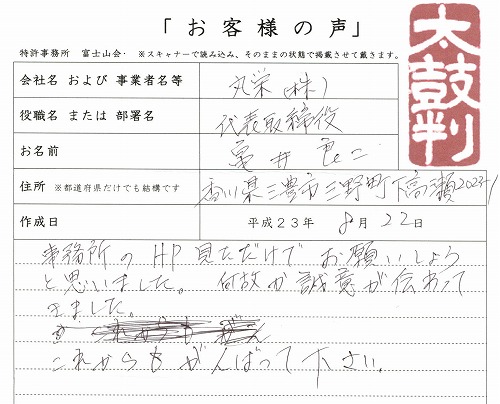 「お客様の声」
特許事務所 富士山会・ ※スキャナーで読み込み、そのままの状態で掲載させて戴きます。
太鼓判
会社名 および 事業者名等 丸栄(株)
役職名 または 部署名 代表取締役
お名前 亀井良二
住所 ※都道府県だけでも結構です 香川県三豊市三野町下高瀬2023-1
作成日 平成23年 8月 22日
事務所のHP見ただけでお願いしよう
と思いました。何故か誠意が伝わって
きました。
これからもがんばって下さい。